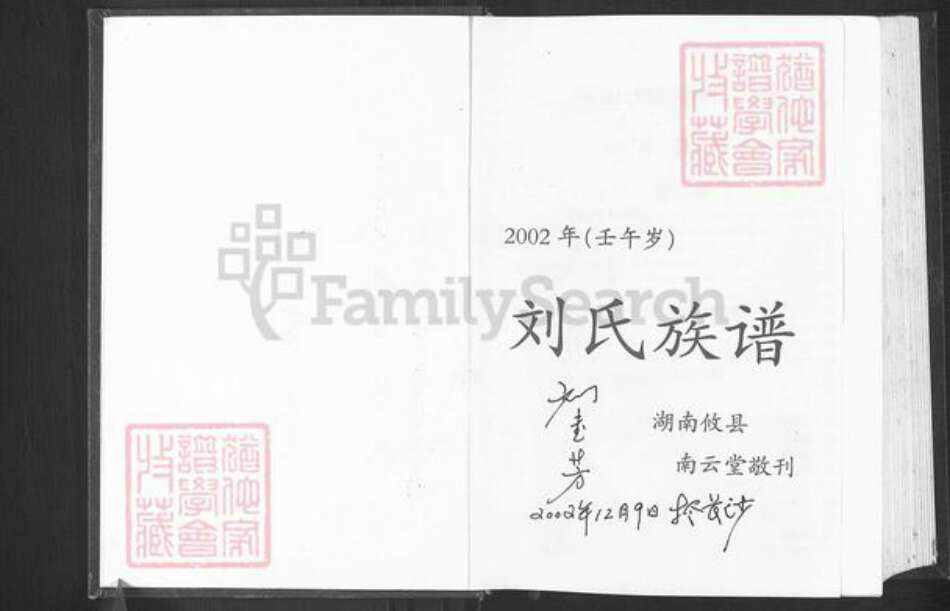 猶他家
譜學會
收藏
2002年(壬午岁)
FamilySearch
刘氏族谱
湖南攸县
南云堂敬刊
刘
芳
2002年12月9日
猶他家
譜學會
收藏